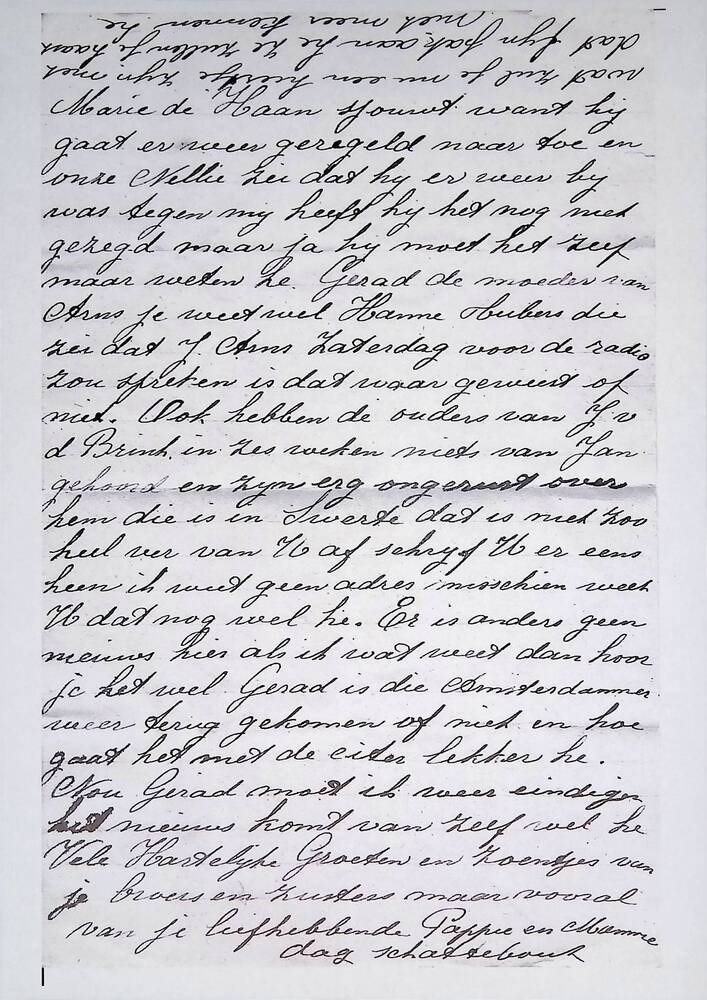 Marie de Haan sjouwt want hy
gaat er weer geregeld naar toe en
onze Nellie zei dat hy er weer by
was tegen my heeft hy het nog niet
gezegd maar ja hy moet het zelf
maar weten he. Gerad de moeder van
Arns je weet wel Hanne Huibers die
zei dat J. Arns Zaterdag voor de radio
zou spreken is dat waar geweest of
niet. Ook hebben de ouders van J v
d Brink in zes weken niets van Jan
gehoord en zyn erg ongerust over
hem die is in Swerte dat is niet zoo
heel ver van U af schryf U er eens
heen ik weet geen adres misschien weet
U dat nog wel he. Er is anders geen
nieuws hier als ik wat weet dan hoor
je het wel. Gerad is die Amsterdammer
weer terug gekomen of niet en hoe
gaat het met de eiter lekker he.
Nou Gerad moet ik weer eindigen
het nieuws komt van zelf wel he
Vele Hartelyke Groeten en zoentjes van
je broers en zusters maar vooral
van je liefhebbende Pappie en Mammie
dag schattebout
wat zul je nu een heertje zyn met
dat fyn pak aan he ze zullen je haast
niet meer kennen he